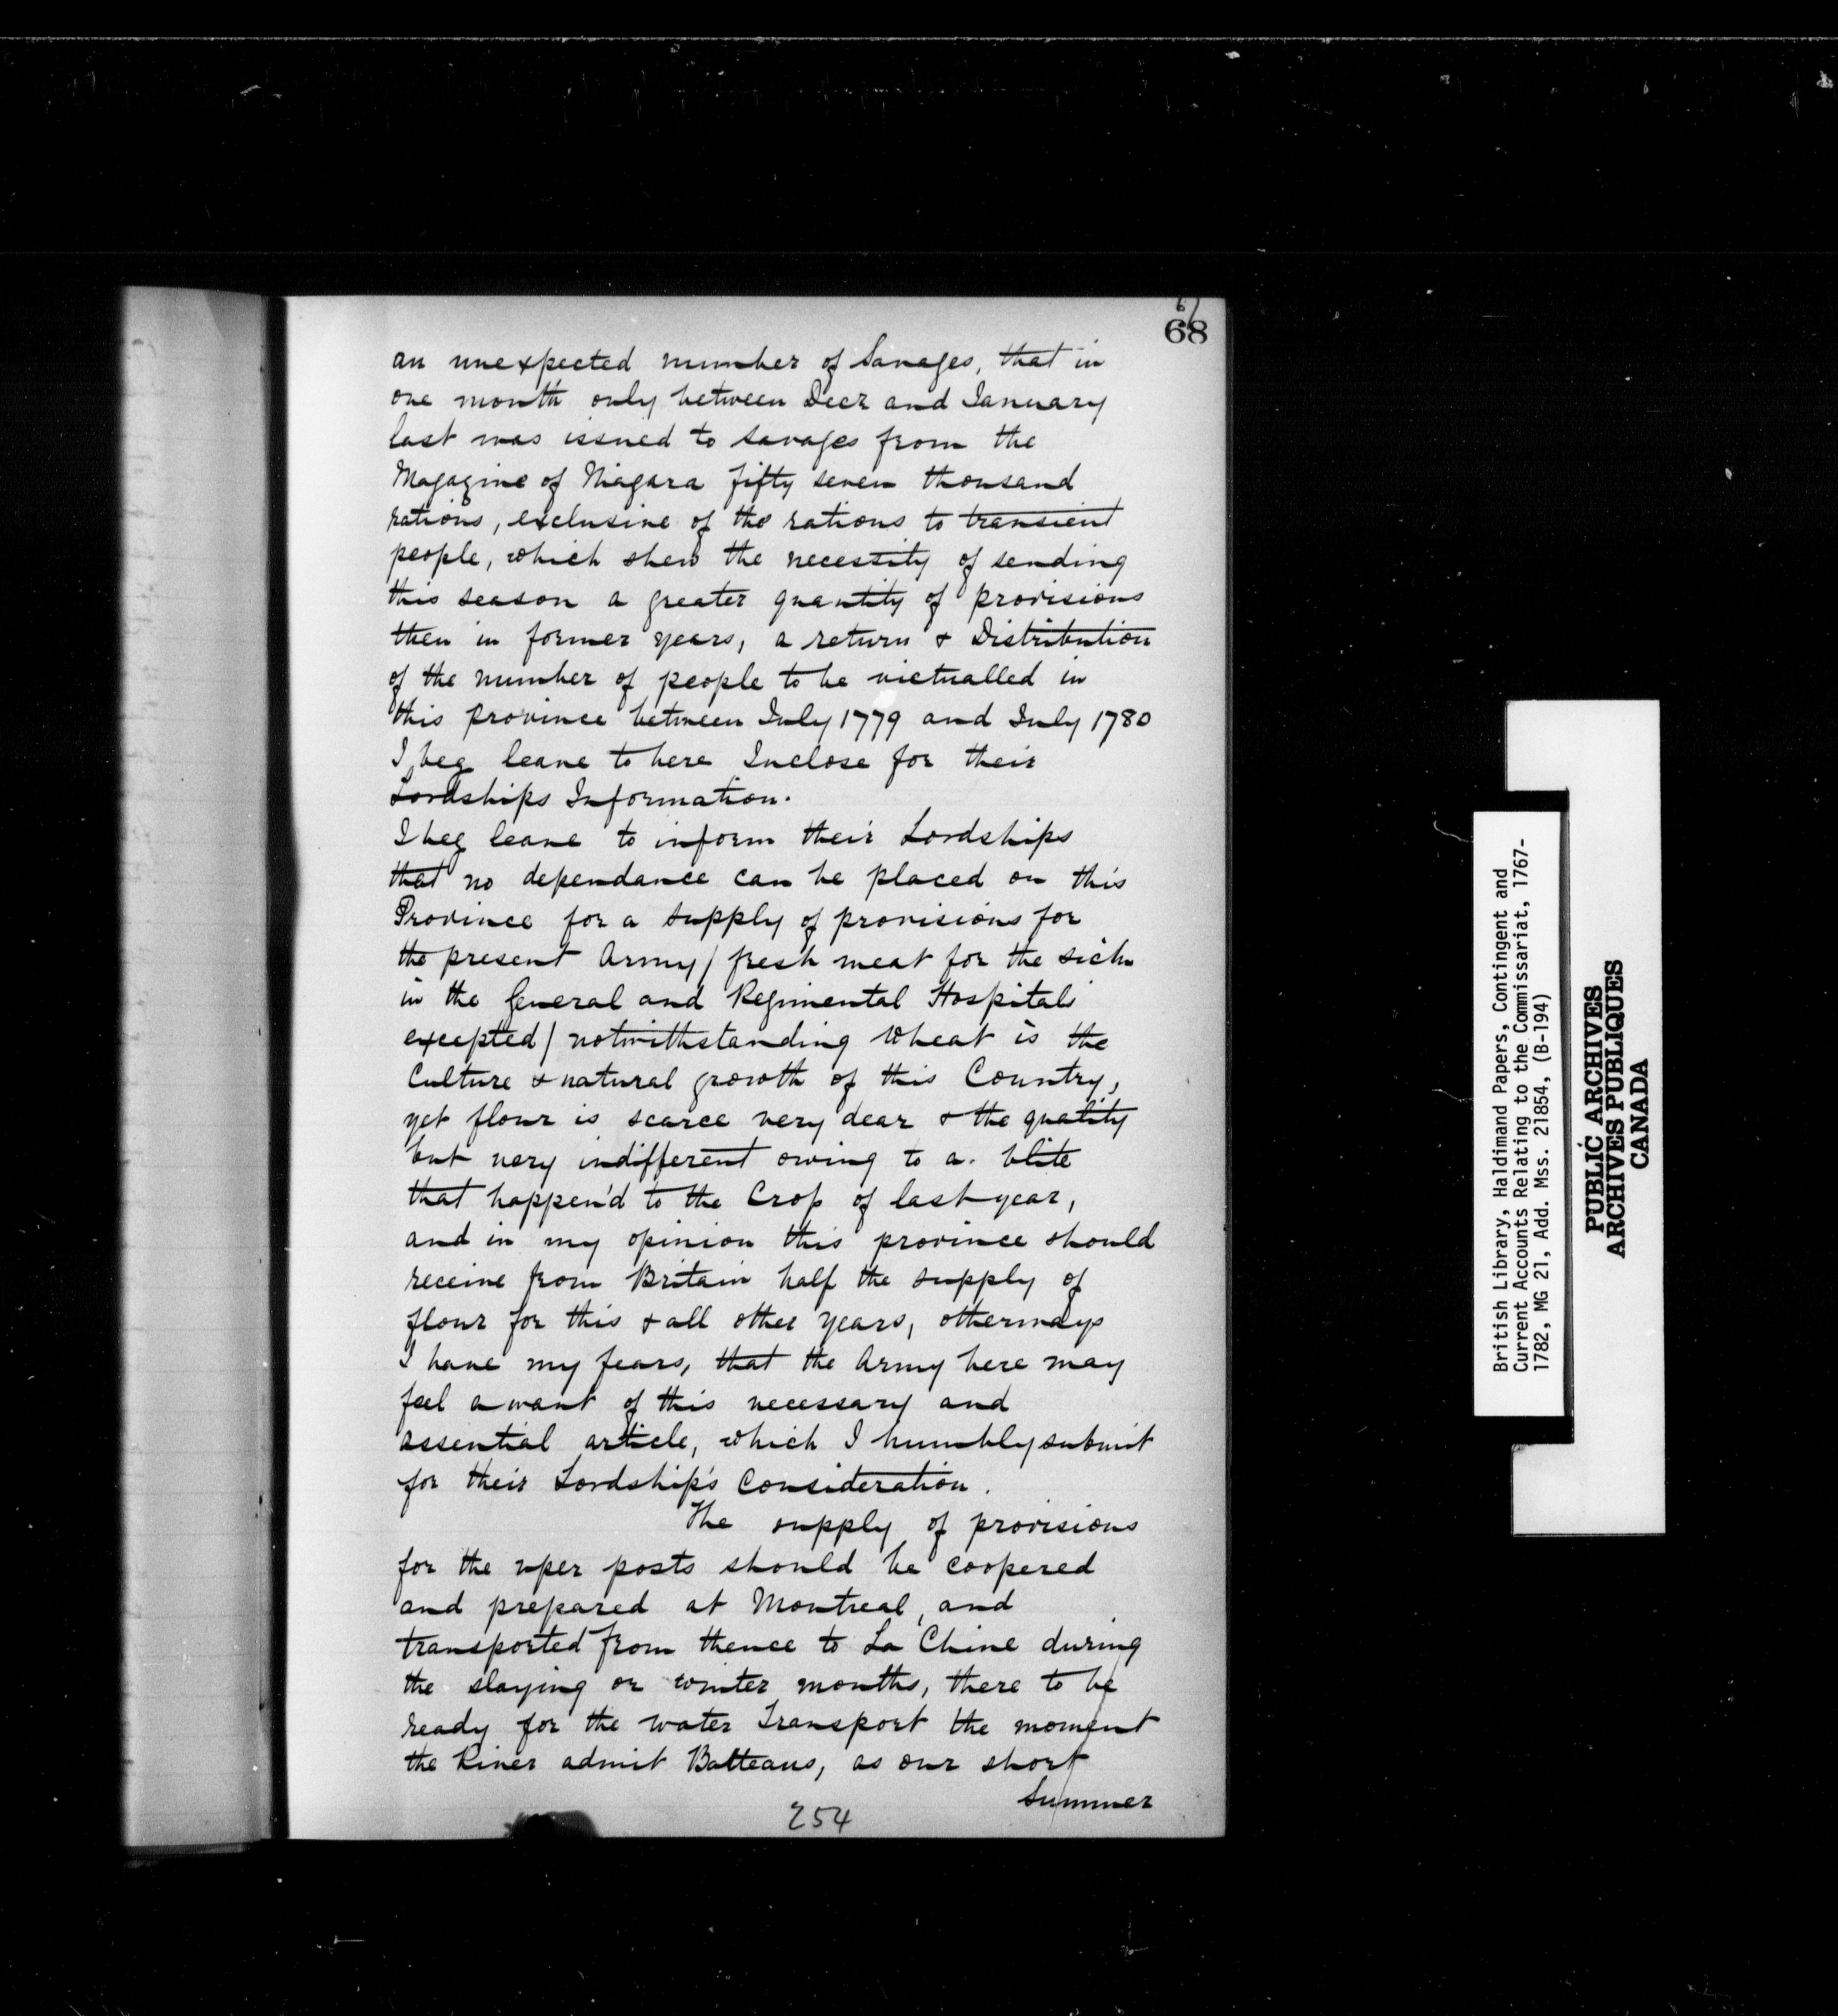 67
68
an unexpected number of Savages, that in
one month only between Decr and January
last was issued to savages from the
Magazine of Niagara fifty seven thousand
rations, exclusive of the rations to transient
people, which shew the necessity of sending
this season a greater quantity of provisions
then in former years, a return & Distribution
of the number of people to be victualled in
this province between July 1779 and July 1780
I beg leave to here Inclose for their
Lordships Information.
I beg leave to inform their Lordships
that no dependance can be placed on this
Province for a supply of provisions for
the present Army / fresh meat for the sick
in the General and Regimental Hospitals
excepted / notwithstanding wheat is the
Culture & natural growth of this Country,
yet flour is scarce very dear & the quality
but very indifferent owing to a blite
that happen'd to the Crop of last year,
and in my opinion this province should
receive from Britain half the supply of
flour for this & all other years, otherways
I have my fears, that the Army here may
feel a want of this necessary and
assential article, which I humbly submit
for their Lordship's Consideration.
The supply of provisions
for the uper posts should be coopered
and prepared at Montreal, and
transported from thence to La Chine during
the slaying or winter months, there to be
ready for the water Transport the moment
the River admit Batteaus, as our short
Summer
254
British Library, Haldimand Papers, Contingent and
Current Accounts Relating to the Commissariat, 1767-
1782, MG 21, Add. Mss. 21854, (B-194)
PUBLIC ARCHIVES
ARCHIVES PUBLIQUES
CANADA